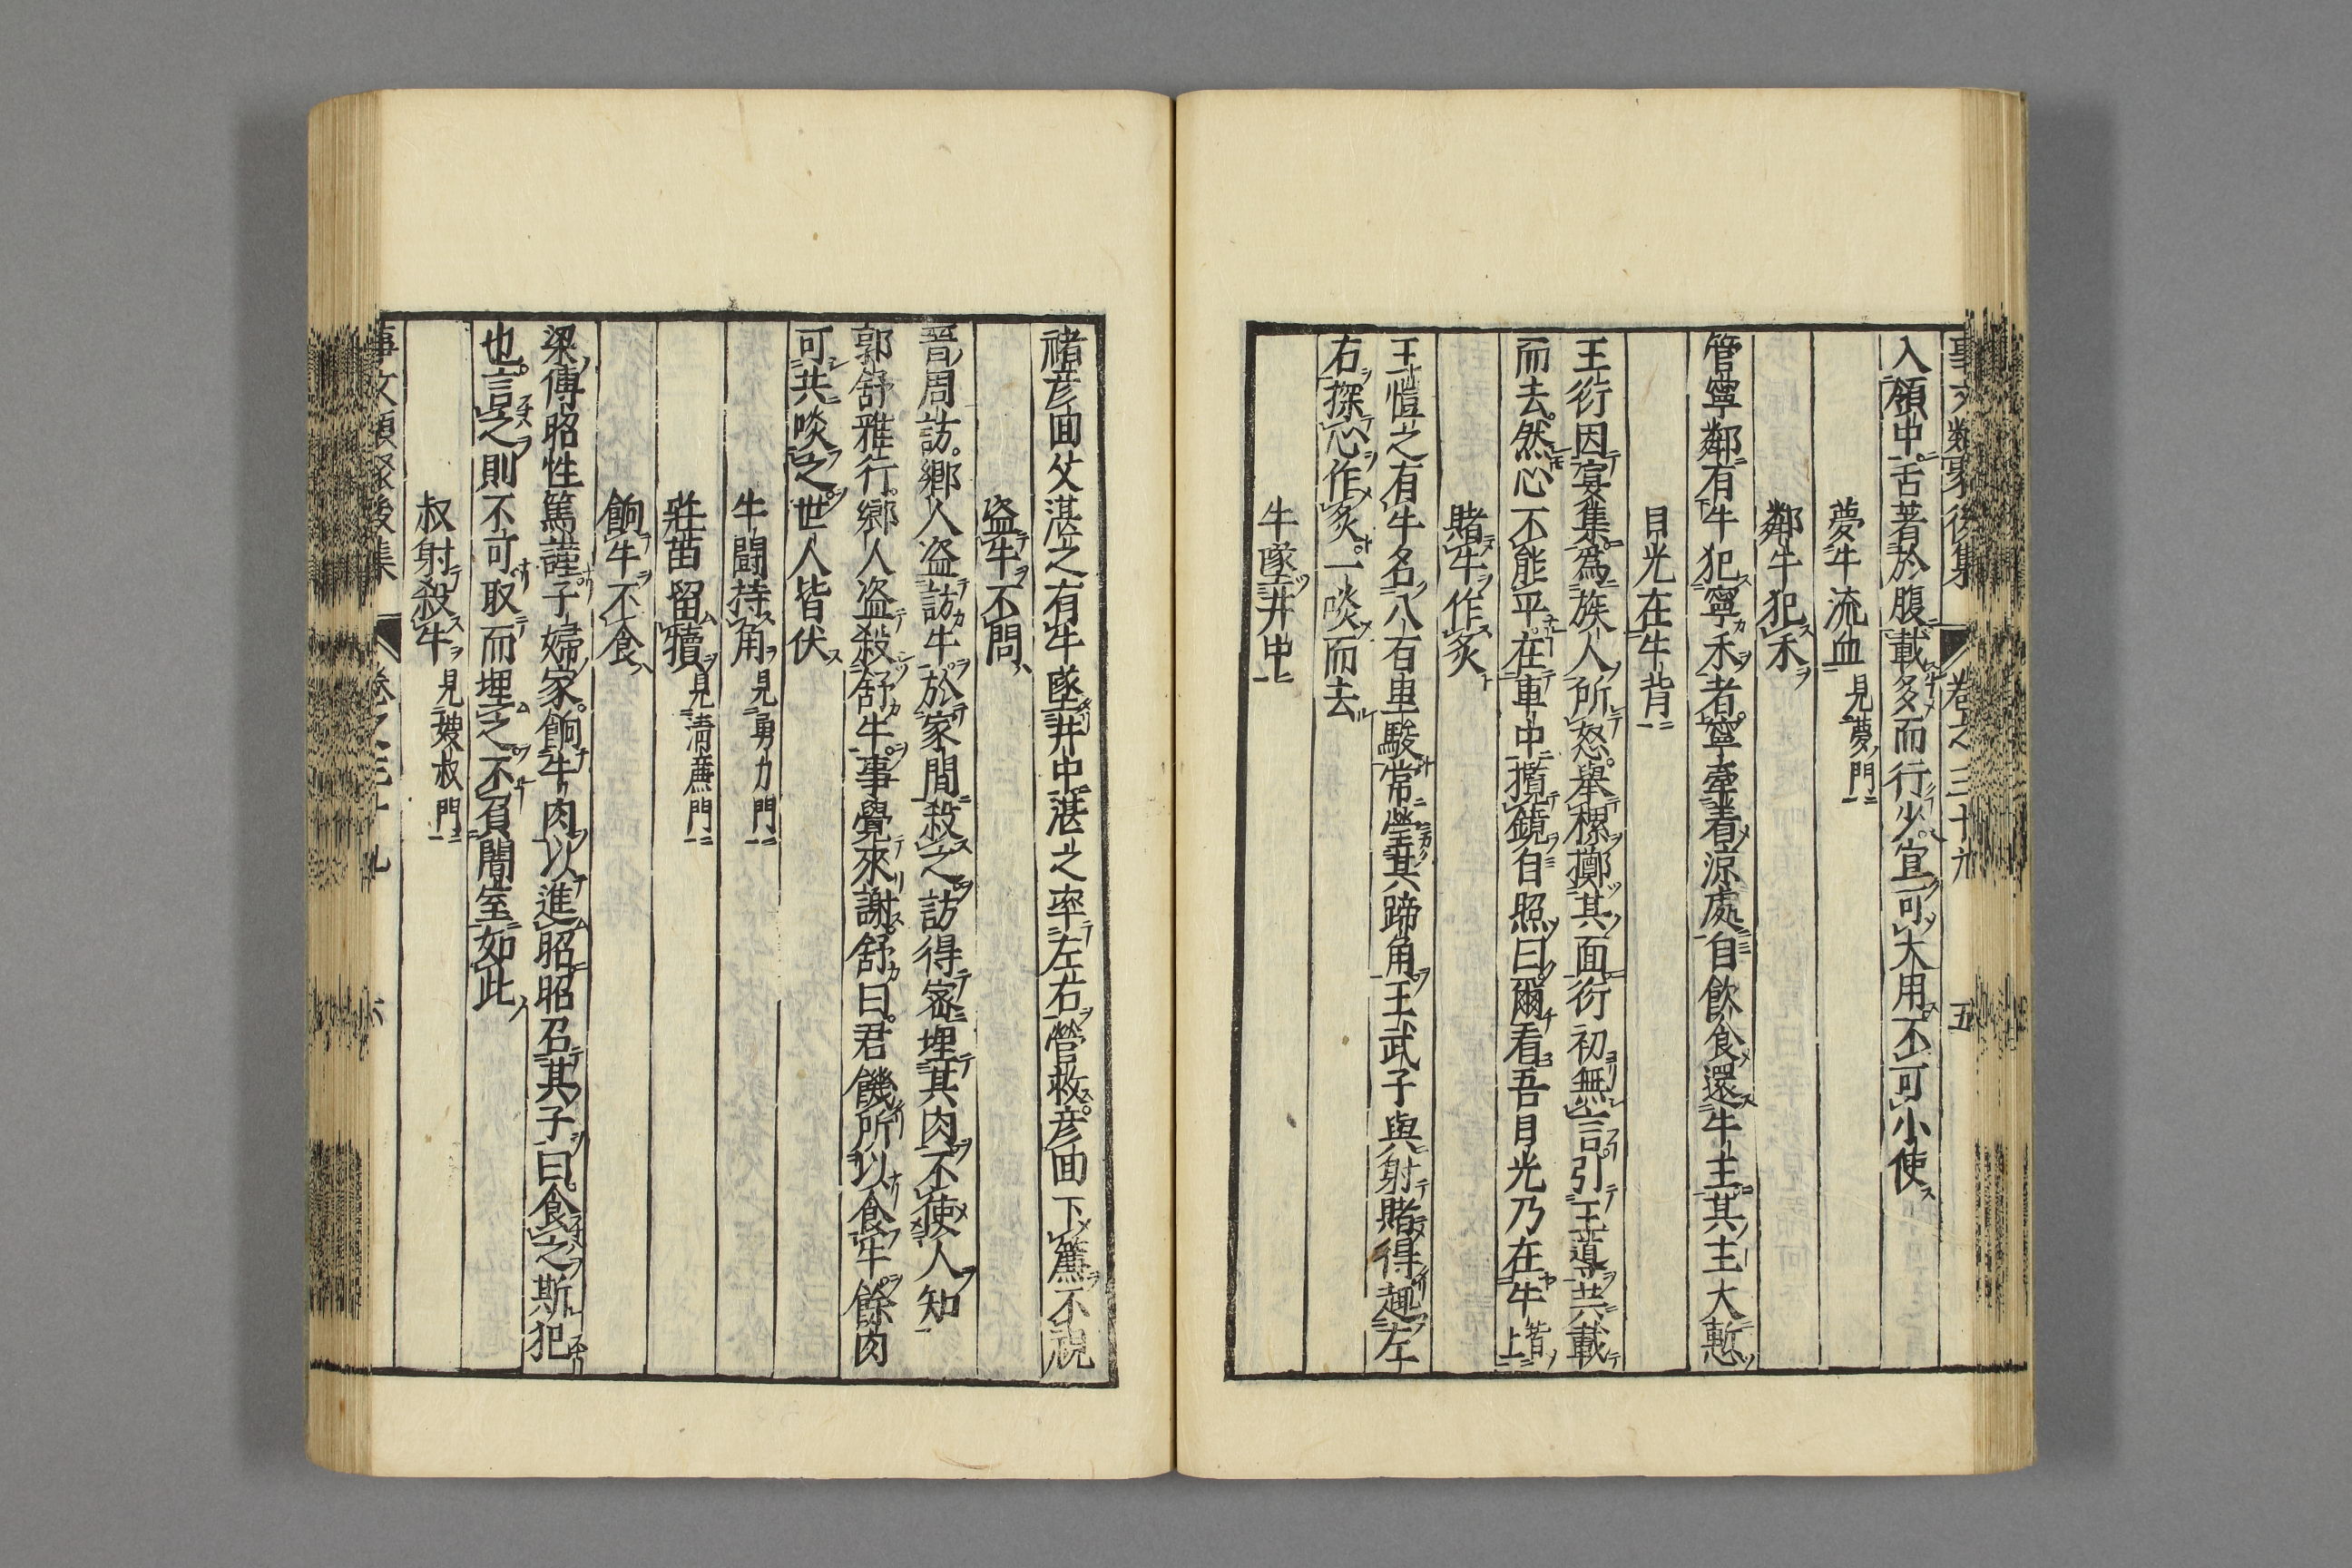 事文類聚後集 卷之三十九 五
入領中舌著於腹載多而行少宜可大用不可小使
夢牛流血 見夢門
鄰牛犯禾
管寧鄰有牛犯寧禾者寧牽着涼處自飲食還牛主其主大慙
目光在牛背
王衍因宴集為族人所怒舉樏擲其面衍初無言引王導共載
而去然心不能平在車中攬鏡自照曰爾看吾目光乃在牛背上
賭牛作炙
王愷之有牛名八百里駿常瑩其蹄角王武子與射賭得趣左
右探心作炙一啖而去
牛墜井中
禇彥回父湛之有牛墜井中湛之率左右營救彥回下簾不視
盗牛不問
晉周訪鄉人盗訪牛於家間殺之訪得密埋其肉不使人知
郭舒雅行鄉人盗殺舒牛事覺來謝舒曰君饑所以食牛餘肉
可共啖之世人皆伏
牛闘持角 見勇力門
莊苗留犢 見清亷門
餉牛不食
梁傅昭性篤謹子婦家餉牛肉以進昭昭召其子曰食之斯犯
也言之則不可取而埋之不負闇室如此
叔射殺牛 見嫂叔門
事文類聚後集 卷之三十九 六